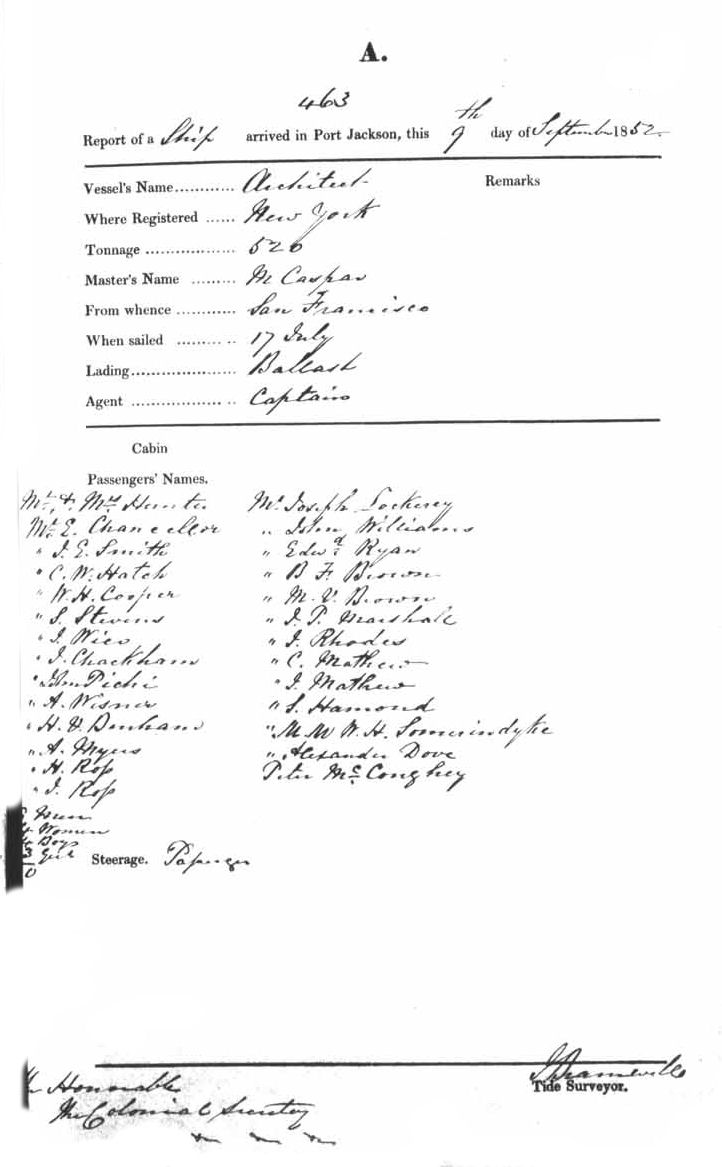 A.
463
Report of a Ship arrived in Port Jackson, this 9th day of September 1852
Vessel's Name............ Architect Remarks
Where Registered ...... New York
Tonnage .................. 526
Master's Name ......... McCaspar
From whence ............ San Francisco
When sailed ......... .. 17 July
Lading..................... Ballast
Agent .................. .. Captain
Cabin
Passengers' Names.
Mr. & Mrs Hunter
Mr. E. Chancellor
" J. E. Smith
" C. W. Hatch
" W. H. Cooper
" S. Stevens
" J. Wies
" J. Chackham
" John Pichi
" A. Wisner
" H. V. Denham
" A. Myers
" H. Ross
" J. Ross
Mr Joseph Lockerey
" John Williams
" Edwd Ryan
" B F Brown
" M. V. Brown
" J. P. Marshall
" J. Rhodes
" C. Mathew
" J. Mathew
" S. Hamond
" M M W. H. Somerindyke
" Alexander Dove
Peter McConghey
Men
4 Women
4 Boys
3 Girls
0
Steerage. Passenger
Tide Surveyor.
Honorable
The Colonial Secretary